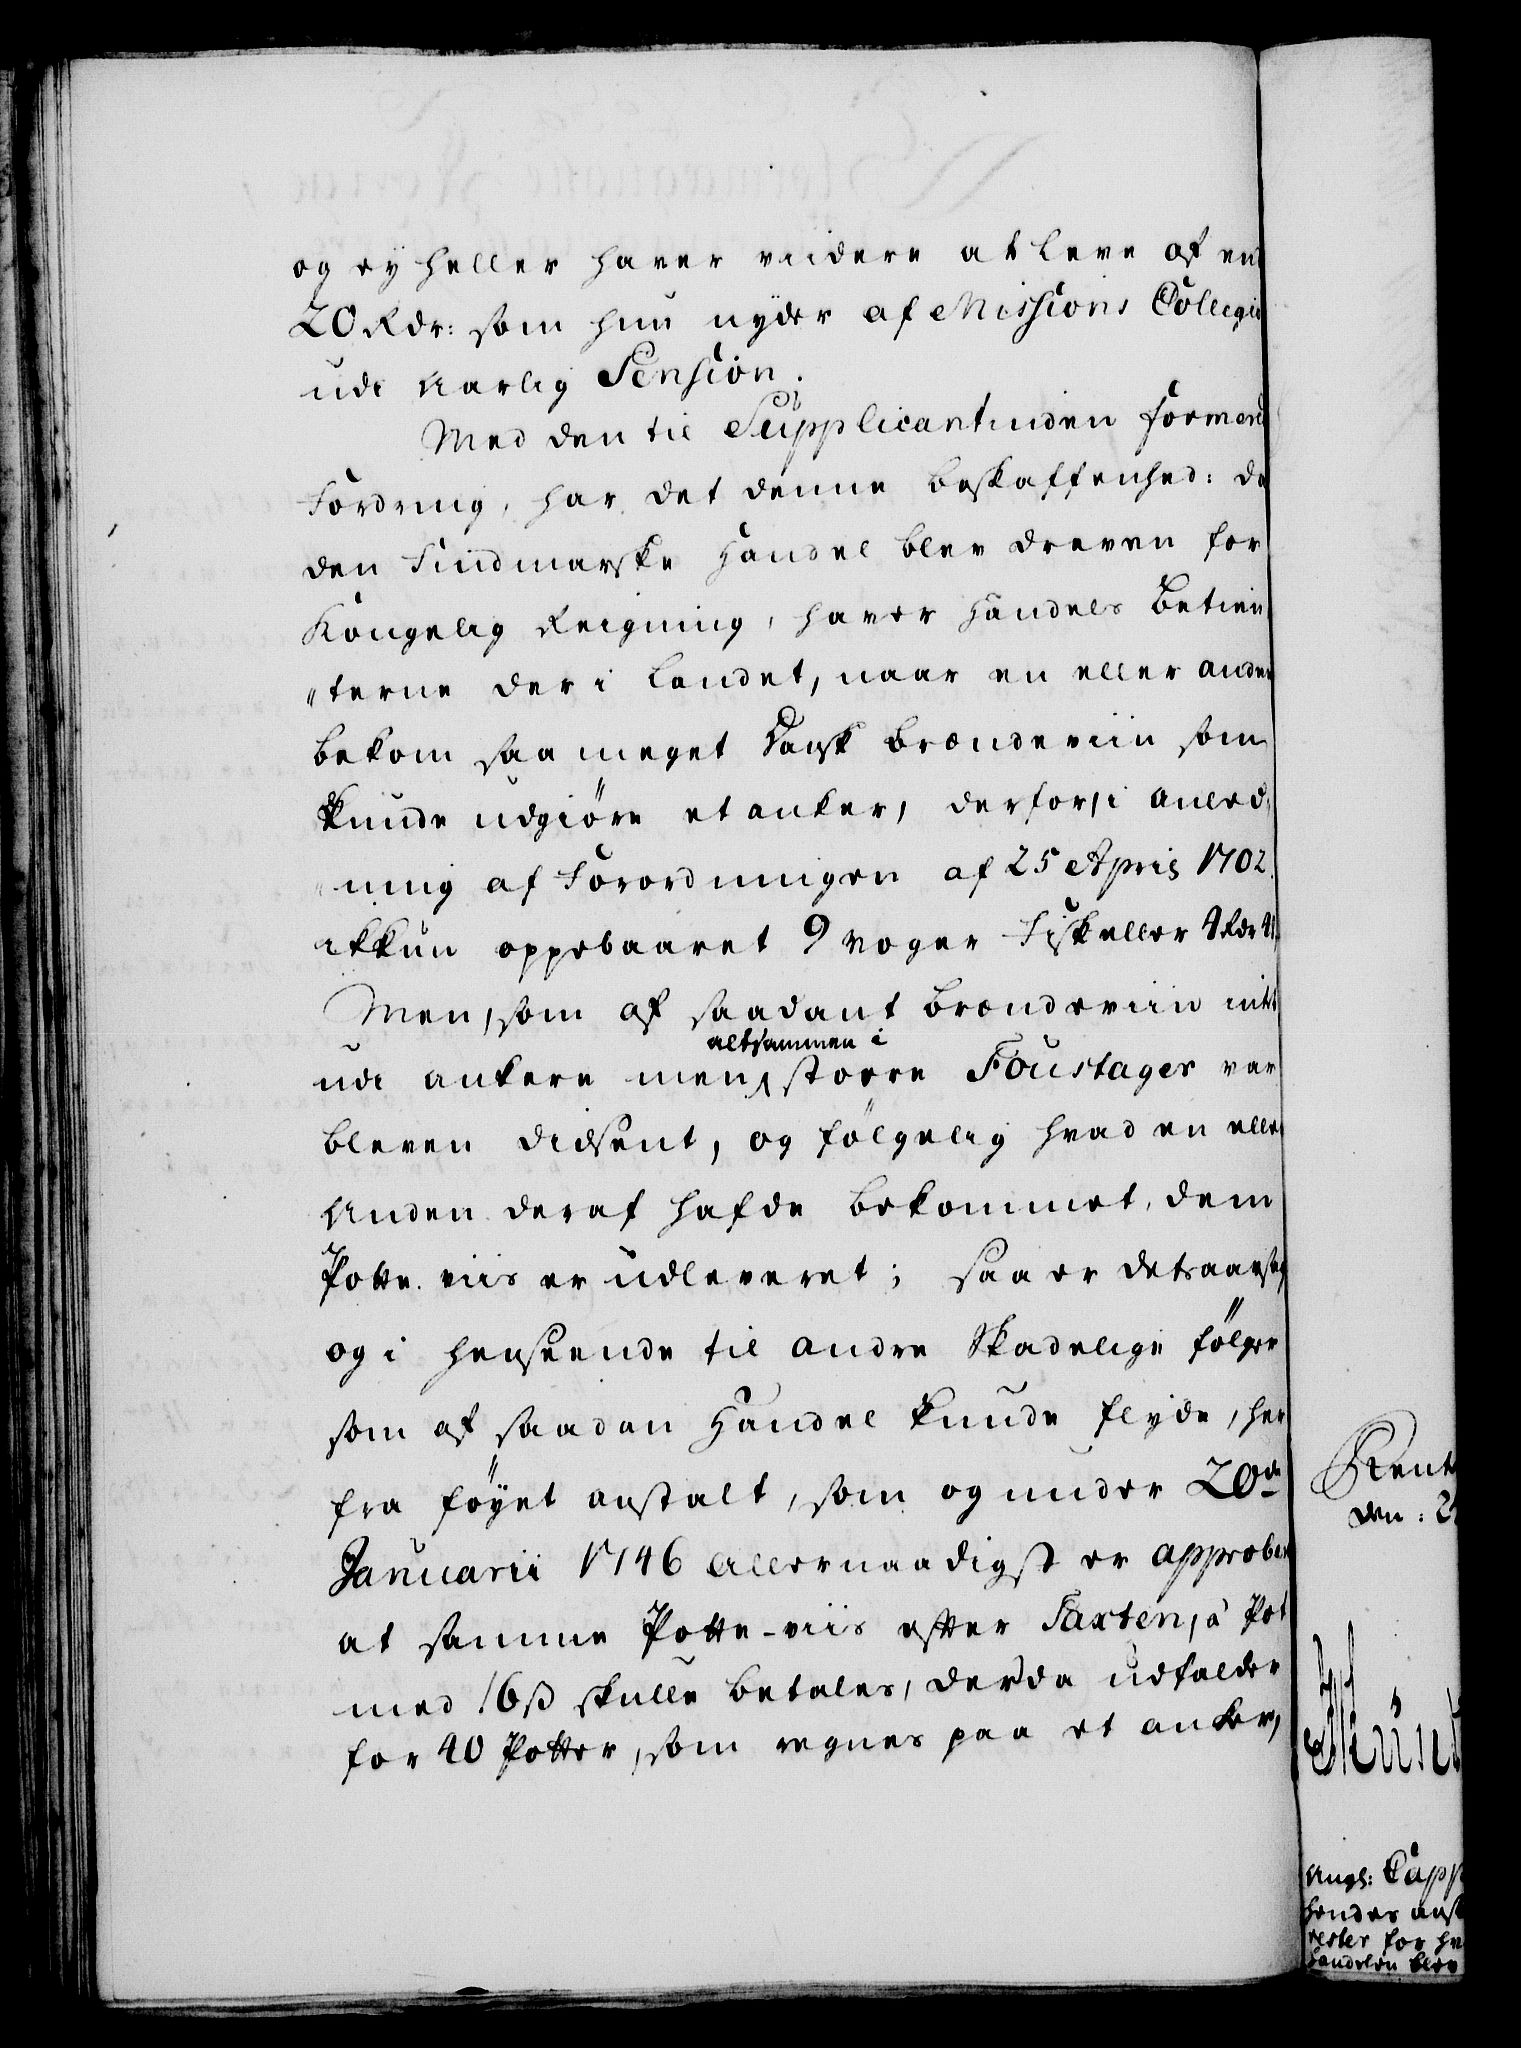 og ey heller haver viidere at leve af end
20 Rdr: som hun nyder af Missions Collegio
udi Aarlig Pension.
Med den til Supplicantinden formend
Fordring, har det denne beskaffenhed: da
den Findmarske Handel blev dreven for
Kongelig Reigning, haver Handels Betien
„terne der i Landet, naar en eller anden
bekom saa meget Dansk Brændeviin som
kunde udgiøre et anker, derfor, i anled„
„ning af Forordningen af 25 April 1702.
ikkun oppebaaret 9 voger Fisk eller 4 Rdr
Men, som af saadant Brændeviin intet
altsammen i
udi ankere men større Foustager var
bleven didsent, og følgelig hvad en eller
Anden deraf hafde bekommet, dem
Potte viis er udleveret; saa er det saavel
og i henseende til andre Skadelige følger
som af saadan Handel kunde flyde, her
fra føyet anstalt, som og under 20de
Januarii 1746 Allernaadigst er approberet
at samme Potte-viis efter Taxten, à Pot
med 16 ß skulle betales, der da udfalder
for 40 Potter, som regnes paa et anker,
Rente
den: 2
Angl: Capp
hendes
rester for
handelen blev